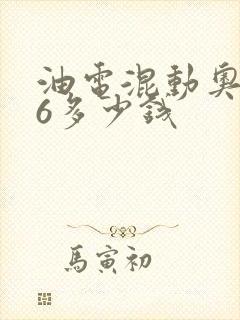 油電混動奧
6多少錢
馬寅初